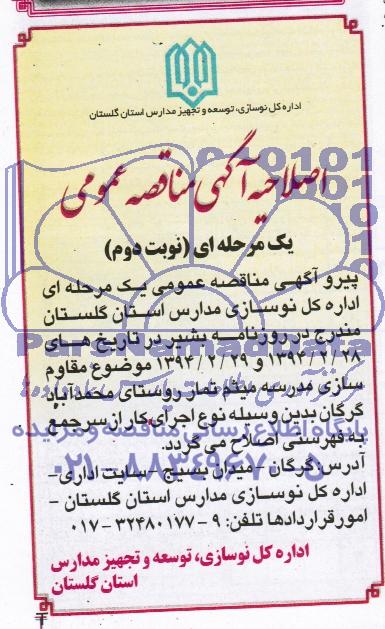 اداره کل نوسازی، توسعه و تجهیز مدارس استان گلستان
اصلاحیه آگهی مناقصه عمومی
یک مرحله ای (نوبت دوم)
پیرو آگهی مناقصه عمومی یک مرحله ای
اداره کل نوسازی مدارس استان گلستان
مندرج در روزنامه بشیر در تاریخ های
۱۳۹۴/۲/۲۸ و ۱۳۹۴/۲/۲۹ موضوع مقاوم
سازی مدرسه میثم تمار روستای محمدآباد
گرگان بدین وسیله نوع اجرای کار از سرجمع
به فهرستی اصلاح می گردد.
آدرس: گرگان - میدان بسیج - سایت اداری -
اداره کل نوسازی مدارس استان گلستان -
امور قراردادها تلفن: ۹-۳۲۴۸۰۱۷۷-۰۱۷
اداره کل نوسازی، توسعه و تجهیز مدارس
استان گلستان
ParsNamadData
پایگاه اطلاع رسانی مناقصه و مزایده
۰۲۱-۸۸۳۴۹۶۷۰-۵